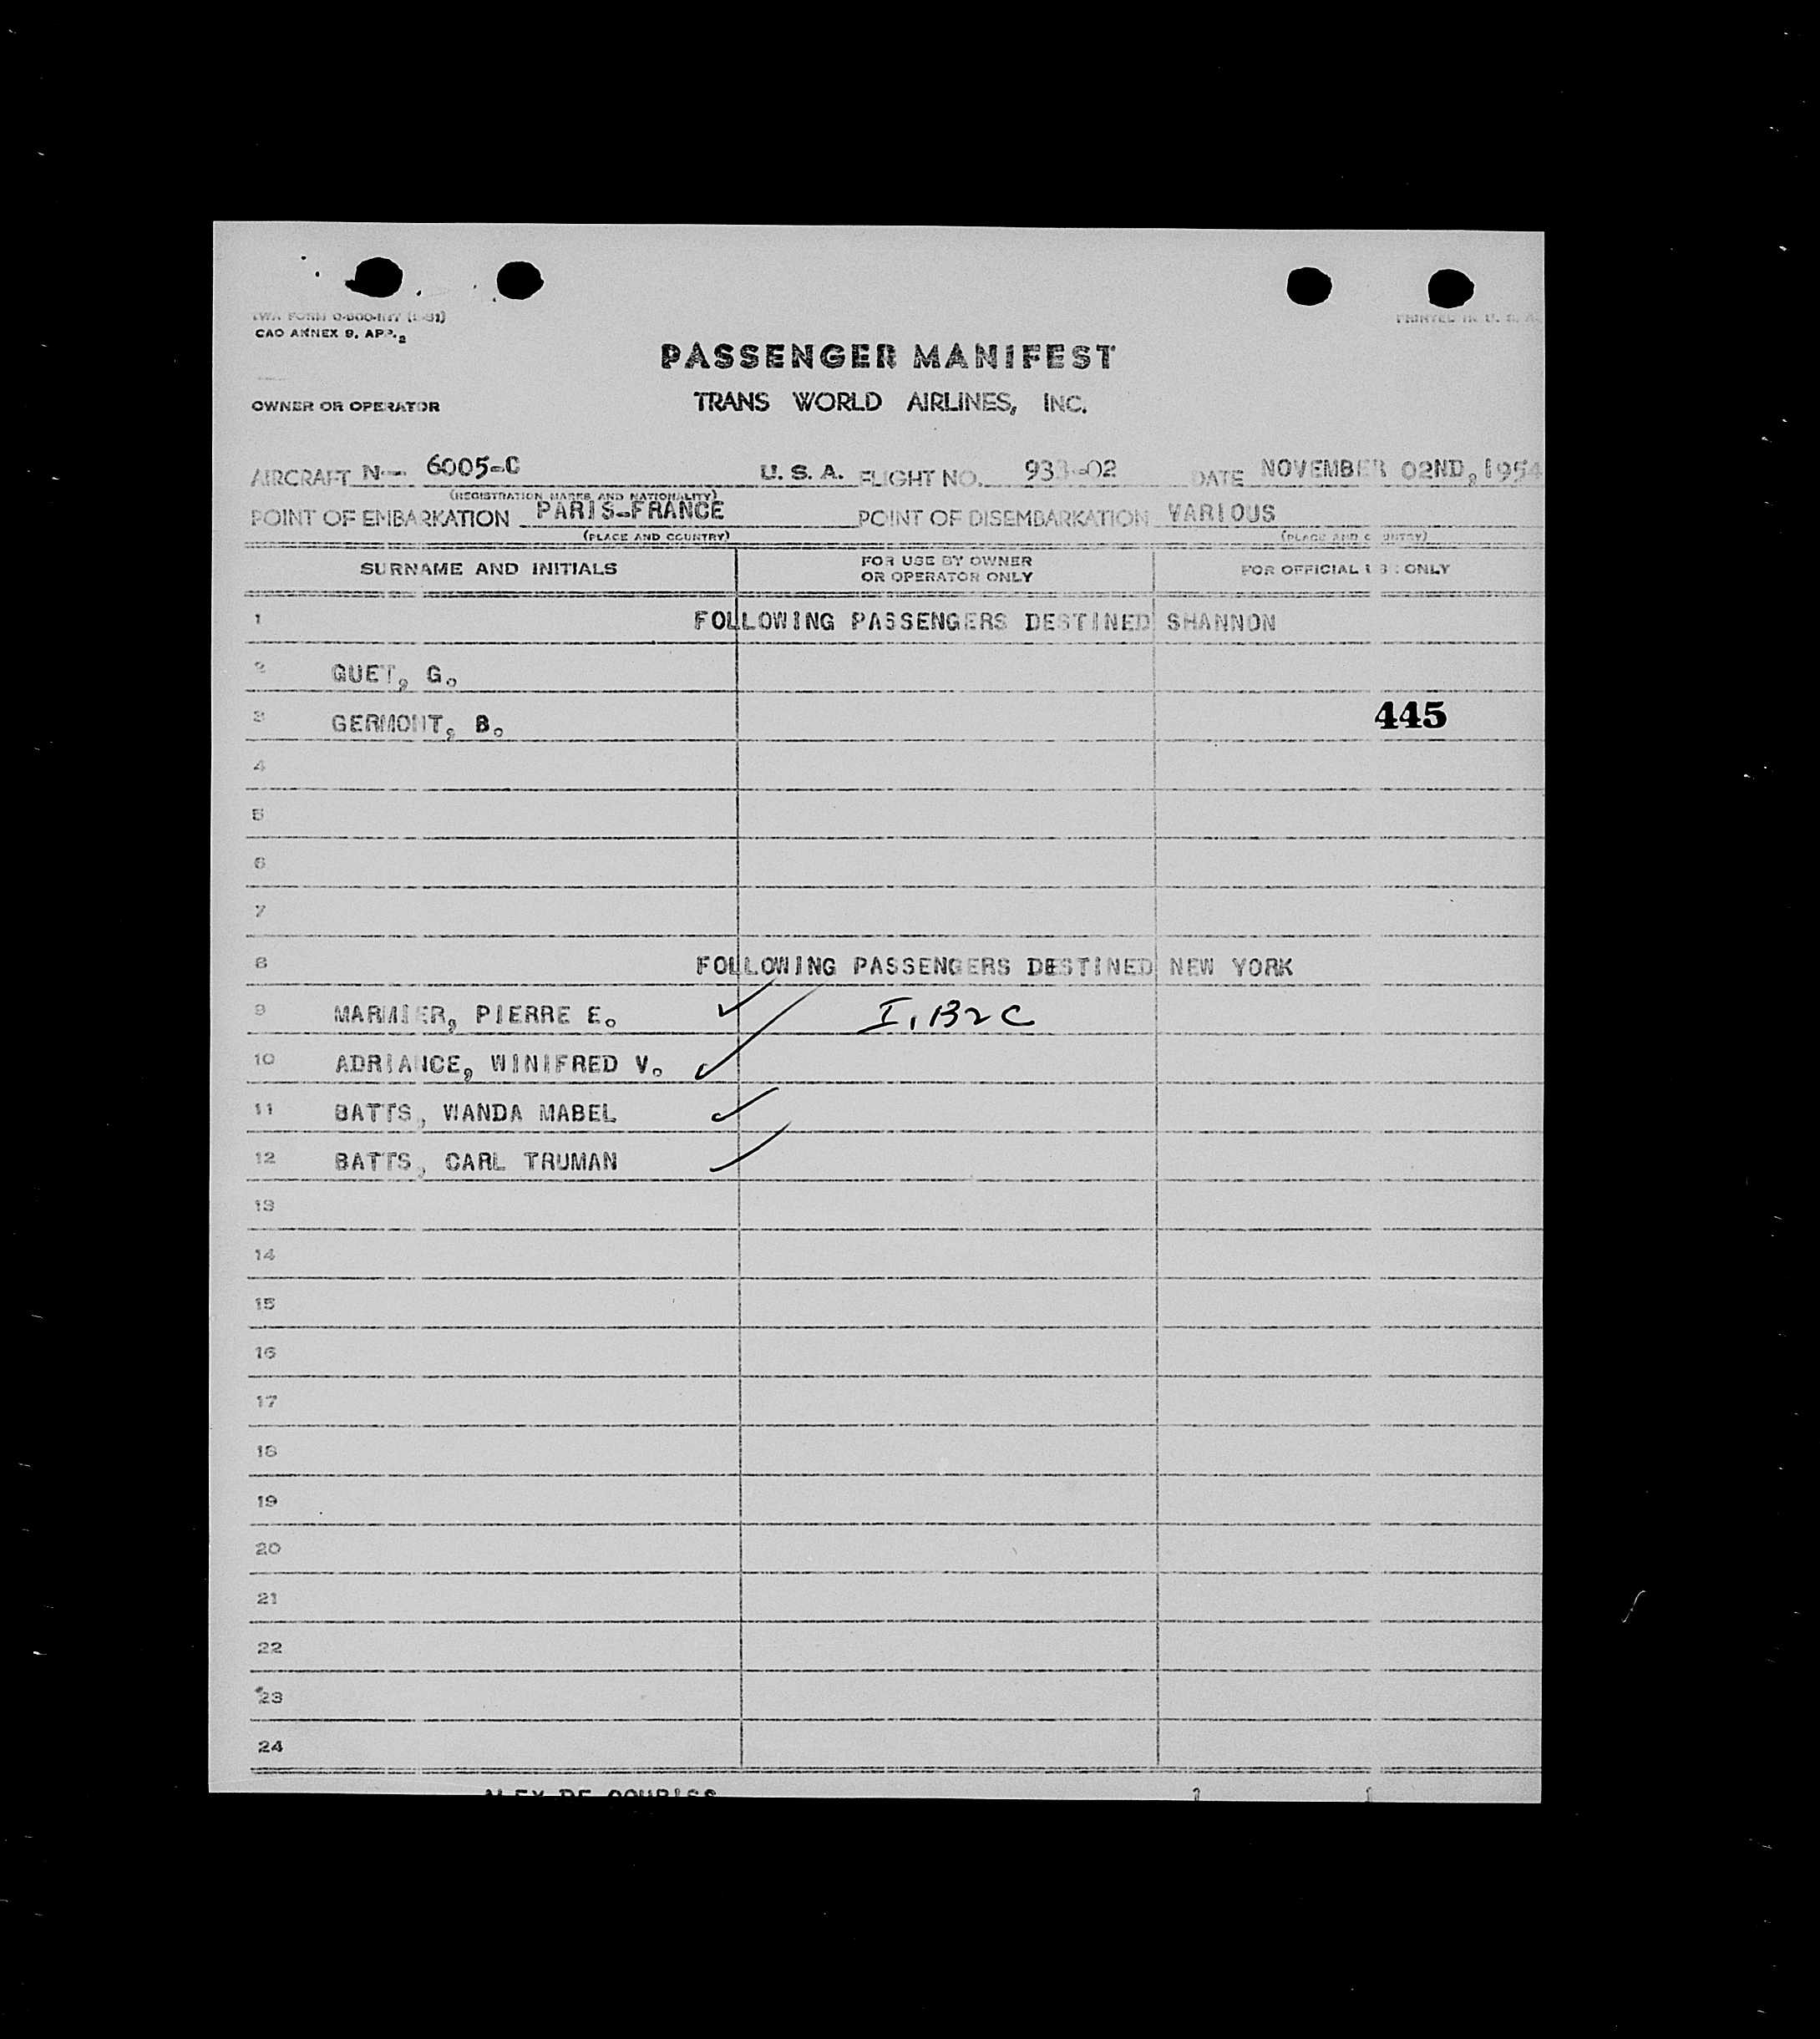 CAO ANNEX 9, APP. 2
PRINTED IN U. S. A.
PASSENGER MANIFEST
OWNER OR OPERATOR TRANS WORLD AIRLINES, INC.
AIRCRAFT N— 6005-C U. S. A. FLIGHT NO. DATE NOVEMBER 02ND, 1954
(REGISTRATION MARKS AND NATIONALITY)
POINT OF EMBARKATION PARIS-FRANCE POINT OF DISEMBARKATION VARIOUS
(PLACE AND COUNTRY) (PLACE AND COUNTRY)
SURNAME AND INITIALS FOR USE BY OWNER OR OPERATOR ONLY FOR OFFICIAL USE ONLY
1 FOLLOWING PASSENGERS DESTINED SHANNON
2 G.
3 GERMONT, B. 445
4
5
6
7
8 FOLLOWING PASSENGERS DESTINED NEW YORK
9 MARMIER, PIERRE E. ✓ I, B2C
10 ADRIANCE, WINIFRED V. ✓
11 BATTS, WANDA MABEL ✓
12 BATTS, CARL TRUMAN ✓
13
14
15
16
17
18
19
20
21
22
23
24